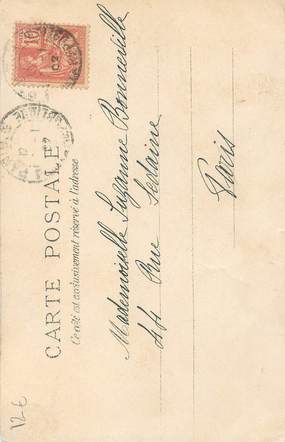 CARTE POSTALE
Ce côté est exclusivement réservé à l'adresse
Mademoiselle Suzanne Bonneville
44 Rue Sedaine
Paris
10
02
12 €